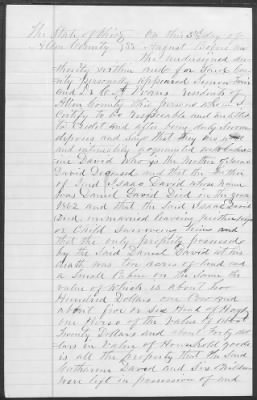 The State of Ohio On this 3d day of
Allen County SS August before me
the undersigned au
thority within and for said Coun
ty personally appeared
and C. A. Evans residents of
Allen County this persons who I
Certify to be respectable and entitled
to credit and after being duly sworn
deposes and says that they are well
and intimately acquainted with Catha
rine David who is the Mother of Isaac
David Deceased and that the Father
of Said Isaac David whose name
was Daniel David Died in the year
1862 and that the Said Isaac David
died unmarried leaving neither wife
or Child Surviving him and
that the only property possessed
by the Said Daniel David at his
death was ten acres of land and
a Small Cabin on the Same the
value of which is about two
Hundred Dollars one Cow and
about five or Six Head of Hogs
one Horse of the value of about
Twenty Dollars and about Forty dol
lars in value of Household goods
is all the property that the Said
Catharine David and Six Children
were left in possession of and